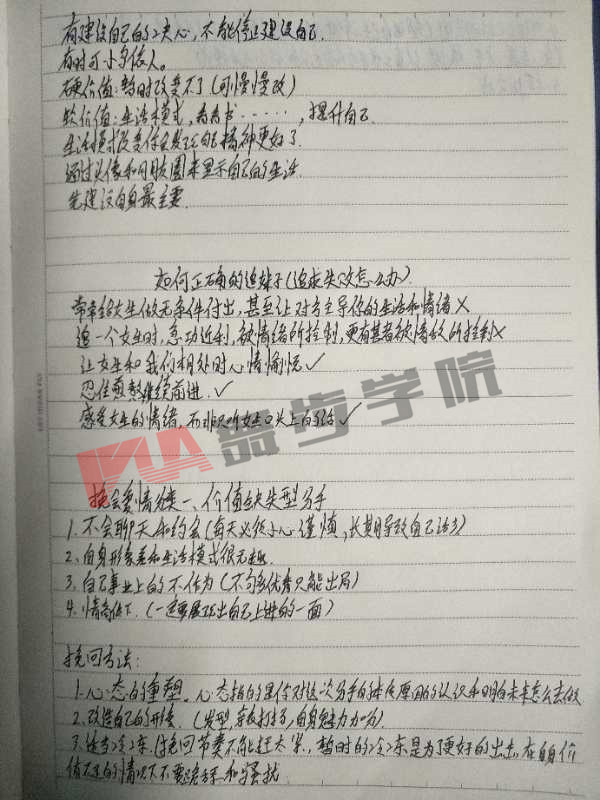 有建设自己的决心,不能停止建设自己.
有时可小鸟依人。
硬价值:暂时改变不了(可慢慢改)
软价值:生活模式,看看书……,提升自己.
生活模式改变你会发现自己精神更好了.
通过头像和朋友圈来显示自己的生活.
先建设自身最主要.
如何正确的追妹子(追求失败怎么办)
常常给女生做无条件付出,甚至让对方主导你的生活和情绪×
追一个女生时,急功近利,被情绪所控制,更有甚者被情敌所控制×
让女生和我们相处时心情愉悦✓
忍住煎熬继续前进.✓
感受女生的情绪,而非只听女生口头上的
学院
挽会爱情分类一、价值缺失型分手
1.不会聊天和约会(每天必须小心谨慎,长期导致自己
2.自身形象差和生活模式很无趣.
3.自己事业上的不作为(不够优秀只能出局)
4.情商低下.(一定要展现出自己上进的一面)
挽回方法:
1.心态的重塑.心态指的是你对这次分手的本质原因的认识和明白未来怎么去做
2.改造自己的形象(发型,穿衣打扮,自身魅力加分)
3.适当冷冻.(挽回节奏不能赶太紧,暂时的冷冻是为了更好的出击,在自身价
值不足的情况下不要跪舔和骚扰